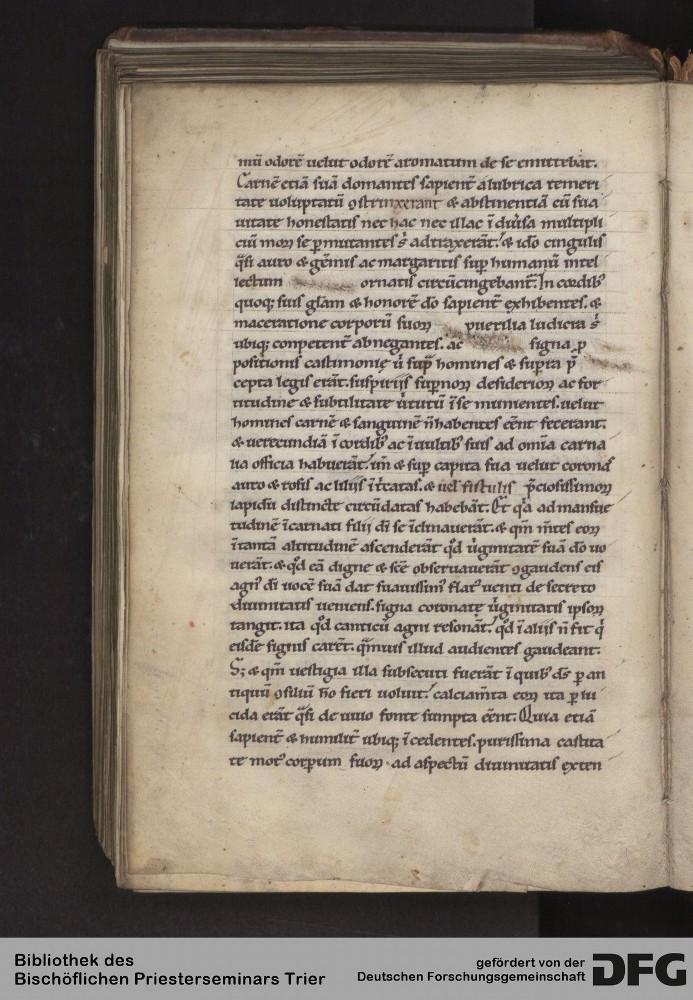 mū odorē uelut odorē aromatum de se emittebāt.
Carnē etiā suā domantes sapient᷒ a lubrica temeri
tate voluptatū ꝯstrinxerant & abstinentiā cū sua
uitate honestatis nec hac nec illac ī diūsa multipli
ciū moꝝ se ꝑmutantes s᷒ adtraxerāt. & idō cingulis
q̄si auro & gēmis ac margaritis sup̄ humanū intel
lectum ornatis circūcingebant᷒. In cordib᷒
quoq; suis glām & honorē dō sapient᷒ exhibentes. &
maceratione corporū suoꝝ puerilia ludicra s᷒
ubiq; conpetent᷒ abnegantes. ac signa ꝓ
positionis castimonię ū sup̄ homines & sup̄ia p̄
cepta legis erāt. suspirijs sup̄noꝝ desiderioꝝ ac for
titudine & subtilitate ūtutū ī se munientes. uelut
homines carnē & sanguinē n̄ habentes eēnt fecerant.
& uerecundiā ī cordib᷒ ac ī uultib᷒ suis ad om̄ia carna
lia officia habuerāt. un̄ & sup̄ capita sua uelut coronas
auro & rosis ac lilijs īt̄catas. & uel᷒ fistulis p̄ciosissimoꝝ
lapidū distincte circūdatas habebāt. Et q̇a ad mansue
tudinē īcarnati filij dī se īclinauerāt. & qm̄ m̄tes eoꝝ
ī tantā altitudinē ascenderāt qd̓ ūginitatē suā dō vo
uerāt. & qd̓ eā digne & scē obseruauerāt ꝯgaudens eis
agn᷒ dī uocē suā dat suauissim᷒ flat᷒ uenti de secreto
diuinitatis ueniens. signa coronatę ūginitatis ipsoꝝ
tangit. ita qd̓ canticū agni resonāt. qd̓ ī alijs n̄ fit q̇
eisdē signis carēt. q̄muis illud audientes gaudeant.
S; & qm̄ uestigia illa subsecuti fuerāt ī quib᷒ ds̄ ꝑ an
tiquū ꝯsiliū hō fieri uoluit. calciam̄ta eoꝝ ita ꝑlu
cida erāt q̄si de uiuo fonte sumpta eēnt. Quia etiā
sapient᷒ & humilit᷒ ubiq; īcedentes. purissima castita
te mot᷒ corporum suoꝝ ad aspectū diuinitatis exten
Bibliothek des
Bischöflichen Priesterseminars Trier
gefördert von der
Deutschen Forschungsgemeinschaft
DFG